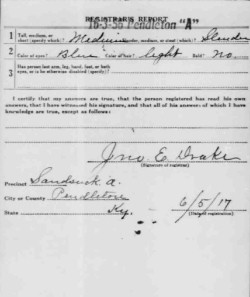 REGISTRAR'S REPORT
16-3-36 Pendleton "A"
1 Tall, medium, or short (specify which)? Medium Slender, medium, or stout (which)? Slender
2 Color of eyes? Blue Color of hair? light Bald? No.
3 Has person lost arm, leg, hand, foot, or both eyes, or is he otherwise disabled (specify)?
I certify that my answers are true, that the person registered has read his own answers, that I have witnessed his signature, and that all of his answers of which I have knowledge are true, except as follows:
Jno. E. Drake
(Signature of registrar)
Precinct
City or County Pendleton
State Ky.
6/5/17
(Date of registration)